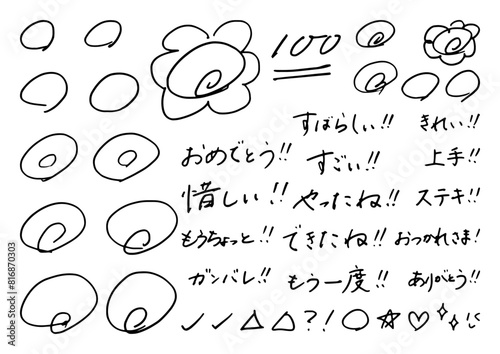 100
すばらしい!! きれい!!
おめでとう!! すごい!! 上手!!
惜しい!! やったね!! ステキ!!
もうちょっと!! できたね!! おつかれさま!
ガンバレ!! もう一度!! ありがとう!!
✓ ✓ △ △ ? ! ○ ☆ ♡
Adobe Stock | #816870303